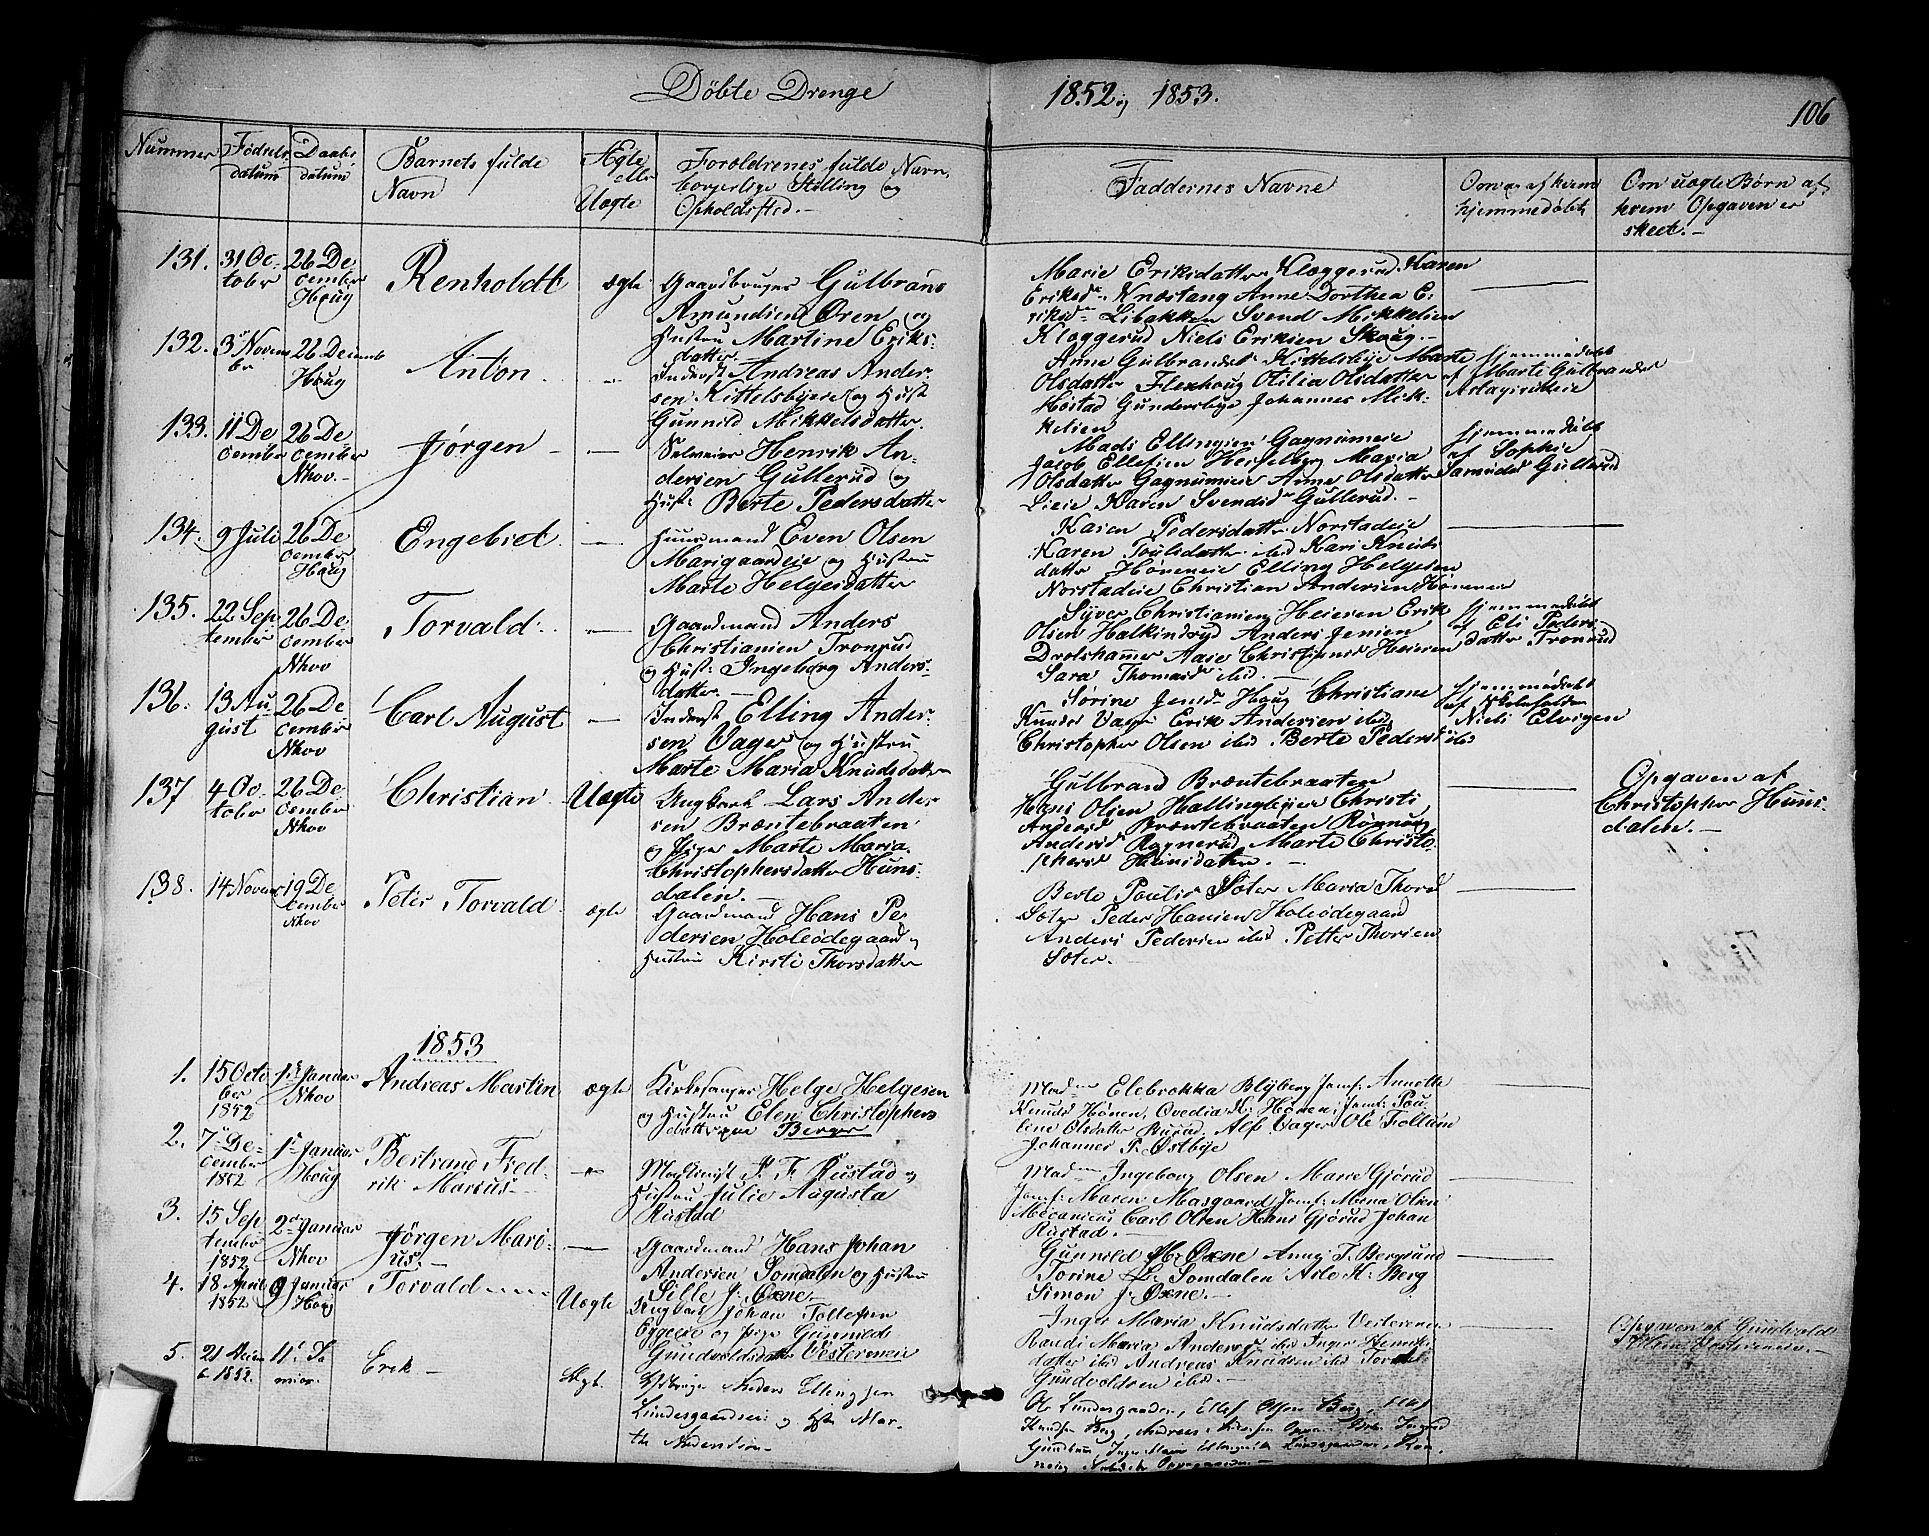 Döbte Drenge 1852 og 1853.
106
Nummer
Fødsels
datum
Daabs
datum
Barnets fulde
Navn
Ægte
eller
Uægte
Forældrenes fulde Navn,
borgerlige Stilling og
Opholdssted.
Faddernes Navne
Om og af hvem
hjemmedøbt
Om uægte Børn af
hvem Opgaven er
skeet.
131.
31 Oc-
tober
26 De
cember
Haug
Renholdt
ægte
Gaardbruger Gulbrans
Amundsen Øren og
Hustru Martine Eriks-
datter
Marie Eriksdatter Klæggerud Karen
Eriksdr. Knæstang Anne Dorthea E-
riksdr Libakken Svend Mikkelsen
Klæggerud Niels Eriksen Skoug.
132.
3 Novem
br
26 Decemb
Haug
Anton
Inderst Andreas Ander-
sen Kittelsbye og Hust
Gunnild Mikkelsdatter
Anne Gulbrandsdr Kittelsbye Marte
Olsdatter Flexhoug Otilia Olsdatter
Høstad Gundersbye Johannes Mik-
kelsen
Hjemmedøbt
af Marte Gulbrandsdr
133.
11 De
cember
26 De
cember
Nhov.
Jørgen
Selveier Henrik An-
dersen Gullerud og
Hust: Berte Pedersdatter
Mads Ellingsen Gagnumeie
Jacob Ellefsen Hesselberg Maria
Olsdatter Gagnumeie Anne Olsdatter
Lieie Karen Svendsdr Gullerud.
Hjemmedøbt
af Sophie
Gullerud
134.
9 Juli
26 De
cember
Haug
Engebret
Huusmand Even Olsen
Marigaardeie og Hustru
Marte Helgesdatter
Karen Pedersdattr Norstadeie
Karen Poulsdatter ibid Kari Knuds
datter Høneneie Elling Helgesen
Norstadeie Christian Andersen Hønene
135.
22 Sep
tember
26 De
cember
Nhov
Torvald
Gaardmand Anders
Christiansen Tronrud
og Hust: Ingeborg Anders-
datter.
Syver Christiansen Heiesen Erik
Olsen Halkinrud Anders Jensen
Drolshammer Aase Christiansdr Heieren
Sara Thomasdr ibid.
Hjemmedøbt
af Eli Peders-
datter Tronrud
136.
13 Au-
gust
26 De
cember
Nhov
Carl August
Inderst Elling Ander-
sen Vager og Hustru
Marte Maria Knudsdatter
Sørine Jensdr Haug Christiane
Knudsdr Vager Erik Andersen ibid
Christopher Olsen ibid Berte Pedersdr ibid
Hjemmedøbt
af Skoleholder
Niels Elvigen
137
4 Oc-
tober
26 De
cember
Nhov
Christian
Uægte
Ungkarl Lars Ander
sen Bræntebraaten
og Pige Marte Maria
Christophersdatter Huns-
dalen.
Gulbrand Bræntebraaten
Hans Olsen Hallingbyeie Christi
Andersd Bræntebraaten Rønnaug
Andersd Rognerud Marte Christo-
phersd Hunsdalen.
Opgaven af
Christopher Huns-
dalen.
138.
14 Novem
19 De
cember
Nhov
Peter Torvald
ægte
Gaardmand Hans Pe-
dersen Holeødegaard og
Hustru Kirsti Thorsdatter
Berte Poulsdr Sæter Maria Thorsd
Sæter Peder Hansen Holeødegaard
Anders Pedersen ibid Petter Thorsen
Sæter.
1853
1.
15 Octo
ber
1852
1ste Januar
Nhov
Andreas Martin
ægte
Kirkesanger Helge Helgesen
og Hustru Elen Christophers
datter Berger
Madm Elebrekka Blyberg Jomf: Annette
Knudsd Hønen, Ovedia K. Hønen, Jomf: Pou
line Olsdatter Rusud. Alf Vager Ole Follum
Johannes P. Østbye
2.
7 De-
cember
1852
1 Januar
Haug
Bertrand Fred-
rik Marius
P. F. Rustad og
Hustru Julie Augusta
Rustad
Madm Ingeborg Olsen Marie Gjørud
Jomf: Maren Masgaard Jomf: Mina Olsen
Mecanicus Carl Olsen Hans Gjørud Johan
Rustad.
3.
15 Sep
tember
1852
2den Januar
Nhov
Jørgen Mari-
us.
Gaardmand Hans Johan
Andersen Somdalen og Hustru
Sille J. Oxne
Gunnild M. Oxne Anne T. Bergsund
Torine L. Somdalen Asle K. Berg
Simon J. Oxne.
4.
18 April
1852
9 Januar
Haug
Torvald
Uægte
Ungkarl Johan Tollefsen
Eggeeie og Pige Gunnild
Gundvoldsdatter Vestereneie
Inger Maria Knudsdatter Vesteren
Randi Maria Andersd ibid Inger Henriks
datter ibid Andreas Knudsen ibid
Gundvoldsen ibid.
Opgaven af Gundvold
5.
21
1852.
11
Erik
Ægt.
Anders Ellingsen
Lundesgaardseie og Hst Mar-
the Andersdtr
Ole Lundesgaarden, Ellef Olsen Berg,
Knudsen Berg, Andreas